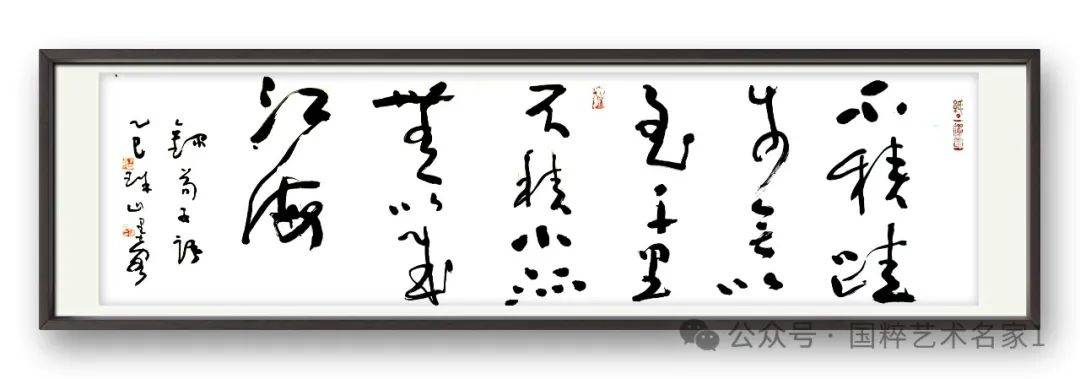 不積跬
步无以
至千里
不積小流
無以成
江海
錄荀子語
乙巳 珠山
公众号 · 国粹艺术名家1